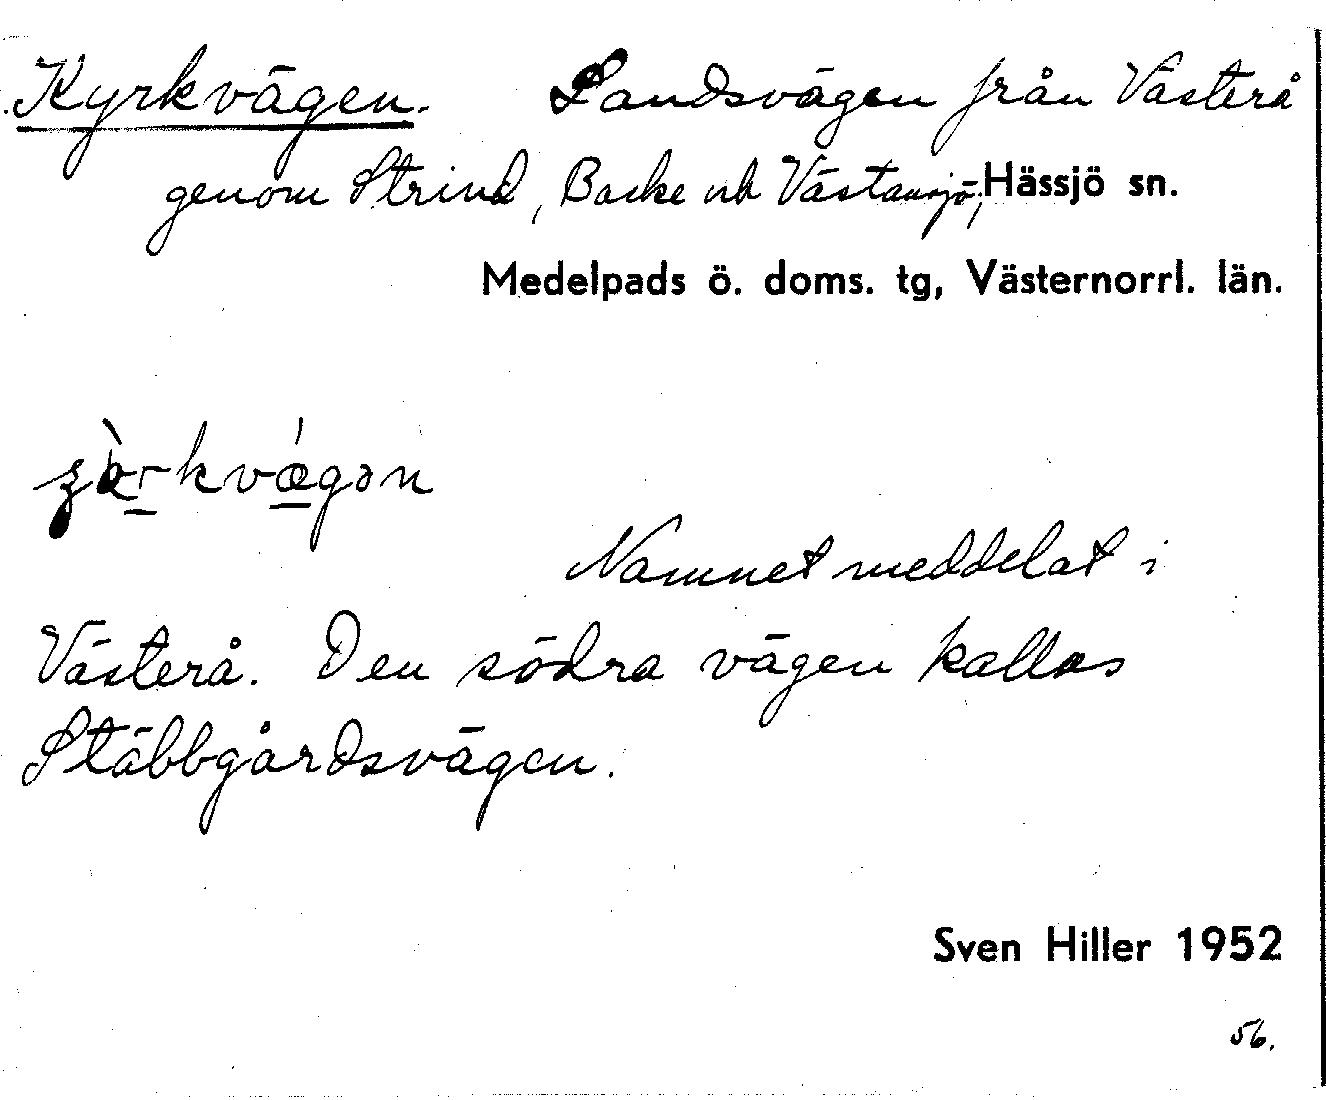 Kyrkvägen. Landsvägen från Västerå
genom Strind, Backe och Västansjö, Hässjö sn.
Medelpads ö. doms. tg, Västernorrl. län.
Namnet meddelat i
Västerå. Den södra vägen kallas
Stäbbgårdsvägen.
Sven Hiller 1952
56.